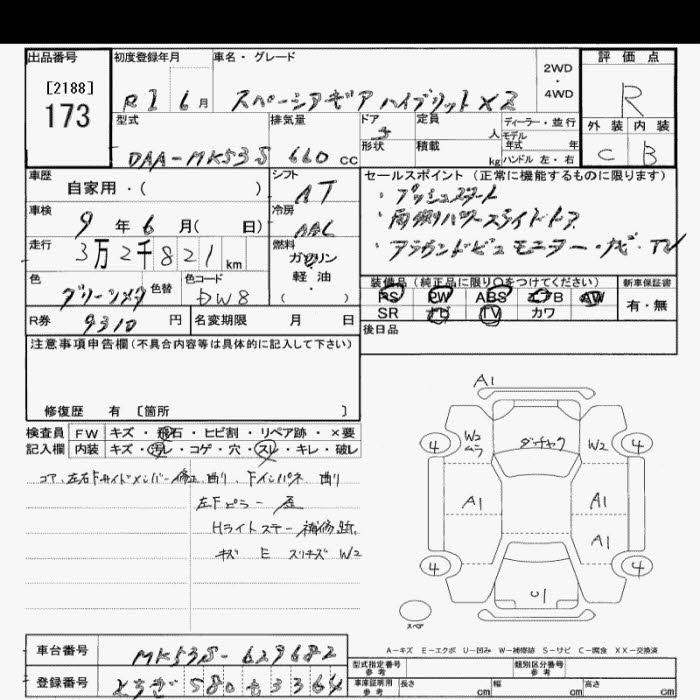 出品番号 初度登録年月 車名・グレード 2WD・4WD 評価点
[2188]
173
R1 6月 スペーシアギア ハイブリットXZ R
型式 排気量 ドア 定員 人 ディーラー・並行 外装 内装
DAA-MK53S 660 cc 5 形状 積載 kg モデル年式 年 ハンドル 左・右 C B
車歴 自家用・( ) シフト AT
セールスポイント(正常に機能するものに限ります)
・プッシュスタート
車検 9年6月( 日) 冷房 AAC
・両側パワースライドドア
走行 3万2千821km 燃料 ガソリン 軽油・
・アラウンドビューモニター・ナビ・TV
色 グリーンメタ 色替 色コード DW8
装備品(純正品に限り○をつけてください) 新車保証書
PS PW ABS エアB AW 有・無
SR ナビ TV カワ
R券 9310円 名変期限 月 日
後日品
注意事項申告欄(不具合内容等は具体的に記入して下さい)
修復歴 有 [箇所 ]
検査員 FW キズ・飛石・ヒビ割・リペア跡・×要
記入欄 内装 キズ・汚レ・コゲ・穴・スレ・キレ・破レ
コア、左右Fサイドメンバー修正曲り、Fインパネ曲り
左Fピラー
Hライトステー補修跡
キズ E スリキズ W2
A1
4 W2 ムラ W2 4
A1 A1
A1
4 U1 4
スペア
A-キズ E-エクボ U-凹み W-補修跡 S-サビ C-腐食 XX-交換済
車台番号 MK53S-629682
登録番号 とちぎ 580 せ 3364
型式指定番号 参考 類別区分番号 参考
車庫証明用 参考 長さ cm 幅 cm 高さ cm